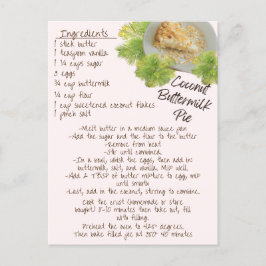 Ingredients
1 stick butter
1 teaspoon vanilla
1 ¼ cups sugar
3 eggs
3/4 cup buttermilk
1/4 cup flour
1 cup sweetened coconut flakes
1 pinch salt
Coconut
Buttermilk
Pie
-Melt butter in a medium sauce pan
-Add the sugar and the flour to the butter
-Remove from heat
-Stir until combined.
-In a bowl, whisk the eggs, then add in
buttermilk, salt, and vanilla. Mix well.
-Add 2 TBSP of butter mixture to egg, mix
until smooth
-Last, add in the coconut, stirring to combine.
Cook the crust (homemade or store
bought) 8-10 minutes then take out, fill
with filling.
Preheat the oven to 425 degrees.
Then bake filled pie at 350 45 minutes